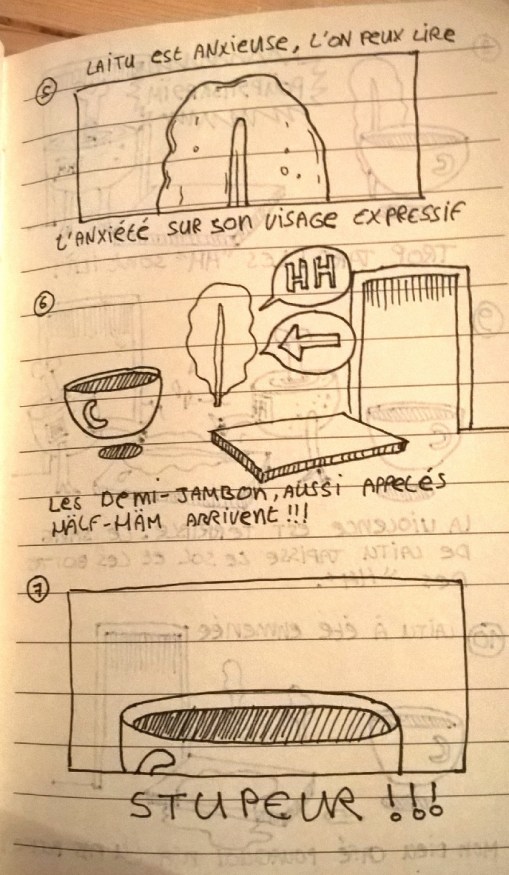 5
LAITU est ANXIEUSE, L'ON PEUX LIRE
L'ANXIÉTÉ SUR SON VISAGE EXPRESSIF
6
HH
LES DEMI-JAMBON, AUSSI APPELÉS
HÄLF-HÄM ARRIVENT!!!
7
STUPEUR!!!